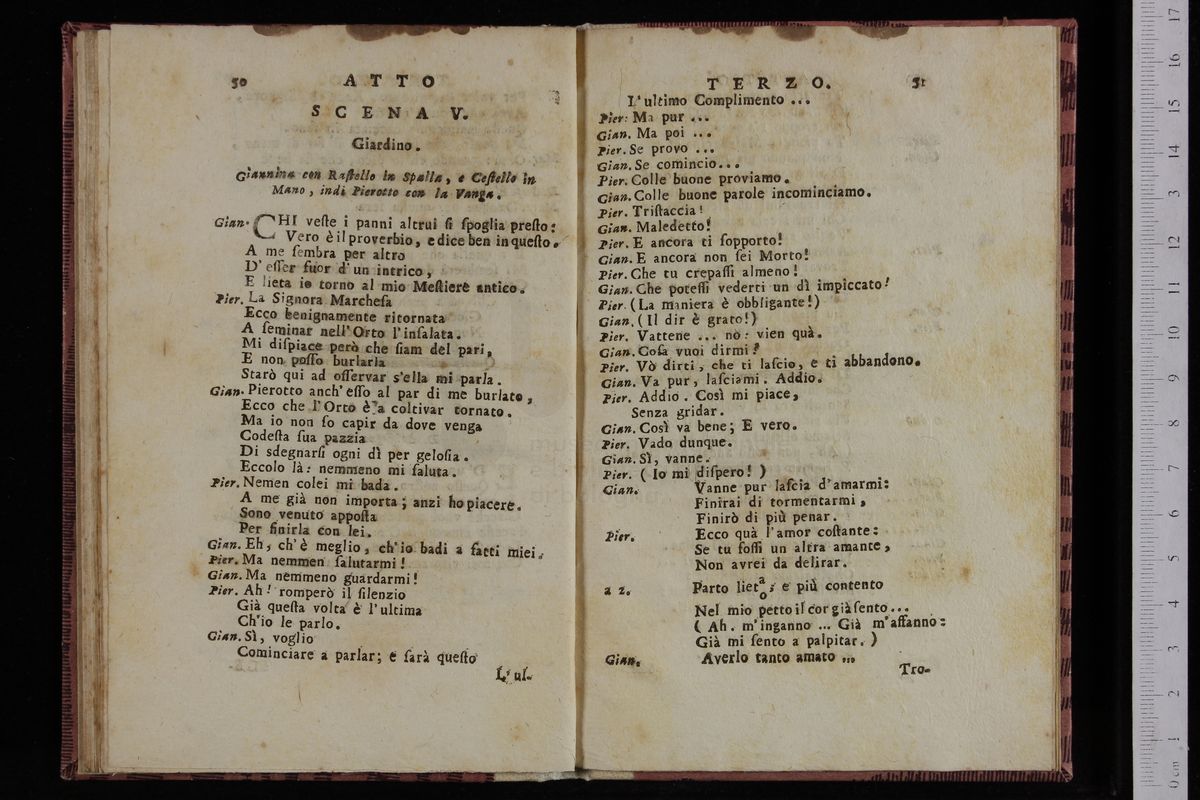 50 ATTO
SCENA V.
Giardino.
Giannina con Raſtello in Spalla, e Ceſtello in
Mano, indi Pierotto con la Vanga.
Gian. CHI veſte i panni altrui ſi ſpoglia preſto:
Vero è il proverbio, e dice ben in queſto.
A me ſembra per altro
D' eſſer fuor d' un intrico,
E lieta io torno al mio Meſtiere antico.
Pier. La Signora Marcheſa
Ecco benignamente ritornata
A ſeminar nell' Orto l' inſalata.
Mi diſpiace però che ſiam del pari,
E non poſſo burlarla
Starò qui ad oſſervar s'ella mi parla.
Gian. Pierotto anch' eſſo al par di me burlato,
Ecco che l' Orto è a coltivar tornato.
Ma io non ſo capir da dove venga
Codeſta ſua pazzia
Di sdegnarſi ogni dì per geloſia.
Eccolo là: nemmeno mi ſaluta.
Pier. Nemen colei mi bada.
A me già non importa; anzi ho piacere.
Sono venuto appoſta
Per finirla con lei.
Gian. Eh, ch' è meglio, ch' io badi a fatti miei.
Pier. Ma nemmen ſalutarmi!
Gian. Ma nemmeno guardarmi!
Pier. Ah! romperò il ſilenzio
Già queſta volta è l' ultima
Ch'io le parlo.
Gian. Sì, voglio
Cominciare a parlar; e ſarà queſto
L' ul-
TERZO. 51
L' ultimo Complimento ...
Pier: Ma pur ...
Gian. Ma poi ...
Pier. Se provo ...
Gian. Se comincio...
Pier. Colle buone proviamo.
Gian. Colle buone parole incominciamo.
Pier. Triſtaccia!
Gian. Maledetto!
Pier. E ancora ti ſopporto!
Gian. E ancora non ſei Morto!
Pier. Che tu crepaſſi almeno!
Gian. Che poteſſi vederti un dì impiccato!
Pier. (La maniera è obbligante!)
Gian. (Il dir è grato!)
Pier. Vattene ... nò: vien quà.
Gian. Coſa vuoi dirmi?
Pier. Vò dirti, che ti laſcio, e ti abbandono.
Gian. Va pur, laſciami. Addio.
Pier. Addio. Così mi piace,
Senza gridar.
Gian. Così va bene; E vero.
Pier. Vado dunque.
Gian. Sì, vanne.
Pier. (Io mi diſpero!)
Gian. Vanne pur laſcia d'amarmi:
Finirai di tormentarmi,
Finirò di più penar.
Pier. Ecco quà l'amor coſtante:
Se tu foſſi un altra amante,
Non avrei da delirar.
a 2. Parto lieta/o; e più contento
Nel mio petto il cor già ſento...
(Ah. m'inganno ... Già m'affanno:
Già mi ſento a palpitar.)
Gian. Averlo tanto amato ...
Tro-